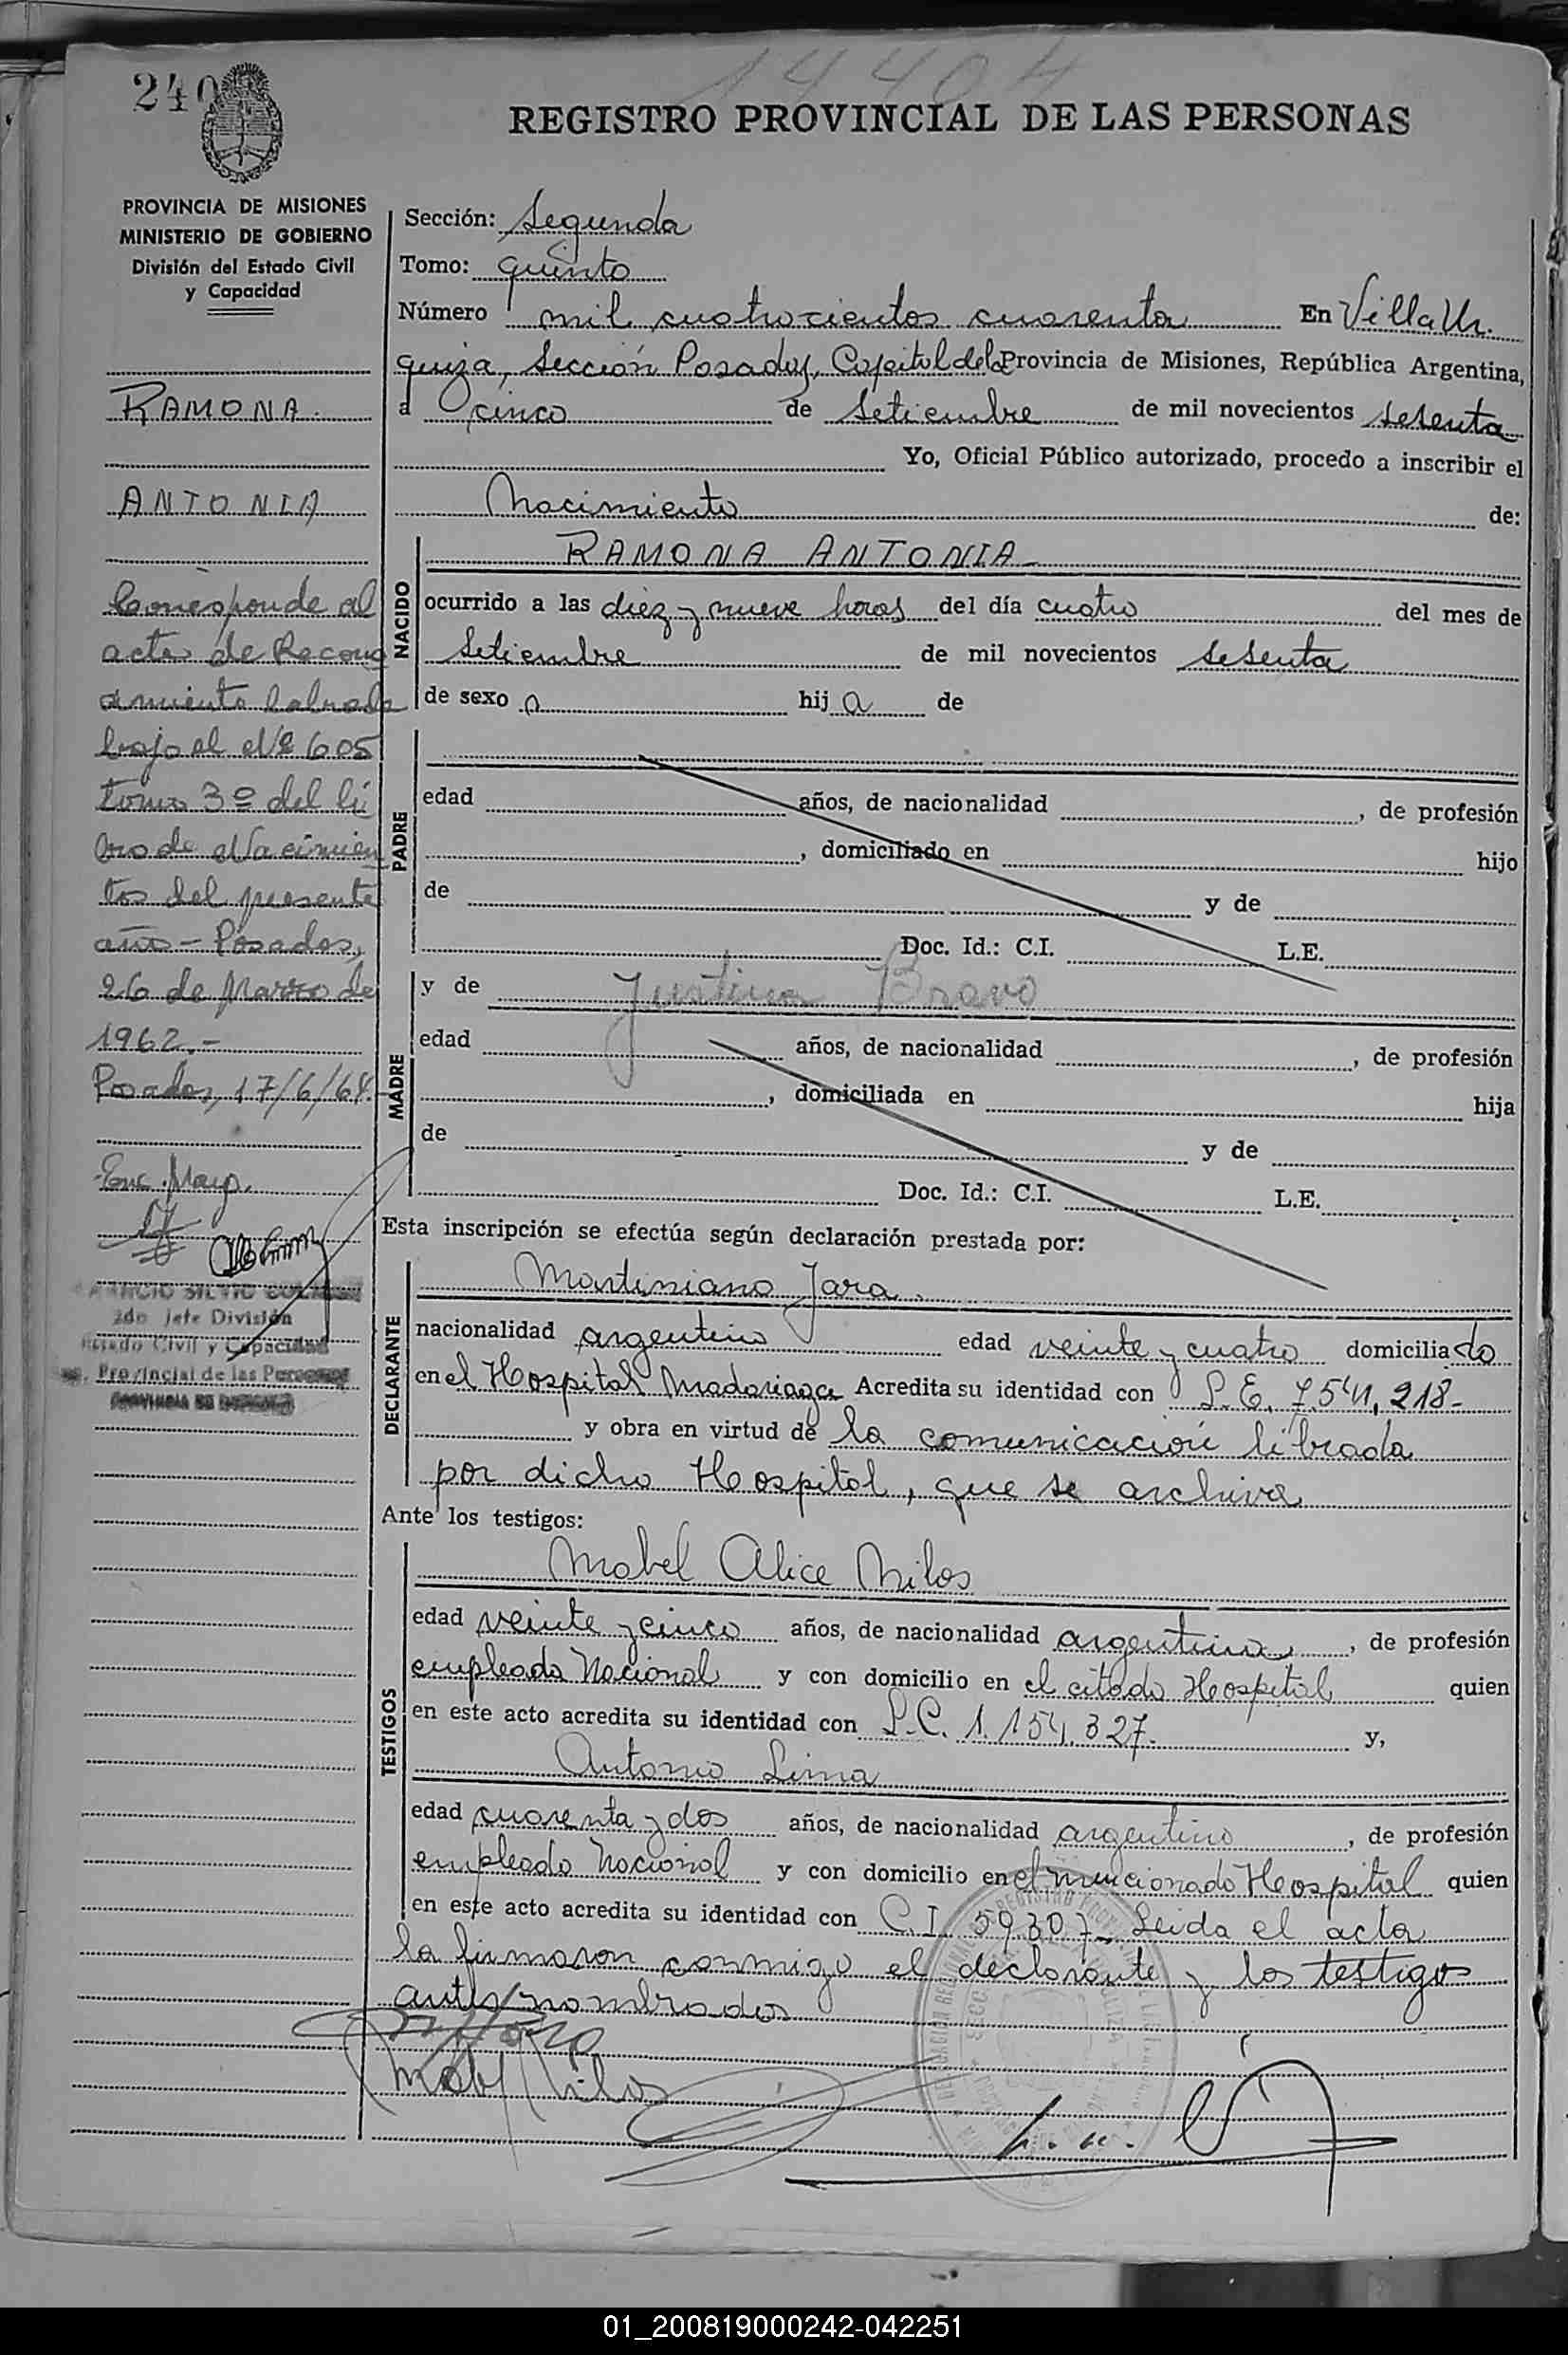 14404
240
REGISTRO PROVINCIAL DE LAS PERSONAS
PROVINCIA DE MISIONES
MINISTERIO DE GOBIERNO
División del Estado Civil
y Capacidad
RAMONA
ANTONIA
Corresponde al
acta de Recono
amiento labrado
bajo el Nº 605
tomo 3º del li
bro de Nacimien
tos del presente
año - Posadas,
26 de Marzo de
1962.-
Posadas, 17/6/68.
Enc. Mayo.
2do Jefe División
Estado Civil y Capacidad
Provincial de las Personas
PROVINCIA DE MISIONES
Sección: Segunda
Tomo: quinto
Número mil cuatrocientos cuarenta En Villa Ur.
quiza, Sección Posadas, Capital de la Provincia de Misiones, República Argentina,
a cinco de Setiembre de mil novecientos sesenta
Yo, Oficial Público autorizado, procedo a inscribir el
Nacimiento de:
NACIDO
RAMONA ANTONIA
ocurrido a las diez y nueve horas del día cuatro del mes de
Setiembre de mil novecientos sesenta
de sexo a hija de
PADRE
edad años, de nacionalidad , de profesión
, domiciliado en hijo
de y de
Doc. Id.: C.I. L.E.
MADRE
y de Justina Bravo
edad años, de nacionalidad , de profesión
, domiciliada en hija
de y de
Doc. Id.: C.I. L.E.
Esta inscripción se efectúa según declaración prestada por:
DECLARANTE
Martiniano Jara.
nacionalidad argentino edad veinte y cuatro domiciliado
en el Hospital Madariaga Acredita su identidad con L.E. 7.541.218-
y obra en virtud de la comunicación librada
por dicho Hospital, que se archiva
Ante los testigos:
TESTIGOS
Mabel Alice Milos
edad veinte y cinco años, de nacionalidad argentina, de profesión
empleada Nacional y con domicilio en el citado Hospital quien
en este acto acredita su identidad con L.C. 1.154.327. y,
Antonio Lima
edad cuarenta y dos años, de nacionalidad argentino, de profesión
empleado Nacional y con domicilio en el mencionado Hospital quien
en este acto acredita su identidad con C.I. 59.307- Leida el acta
la firmaron conmigo el declarante y los testigos
antes nombrados
Mabel Milos
01_200819000242-042251